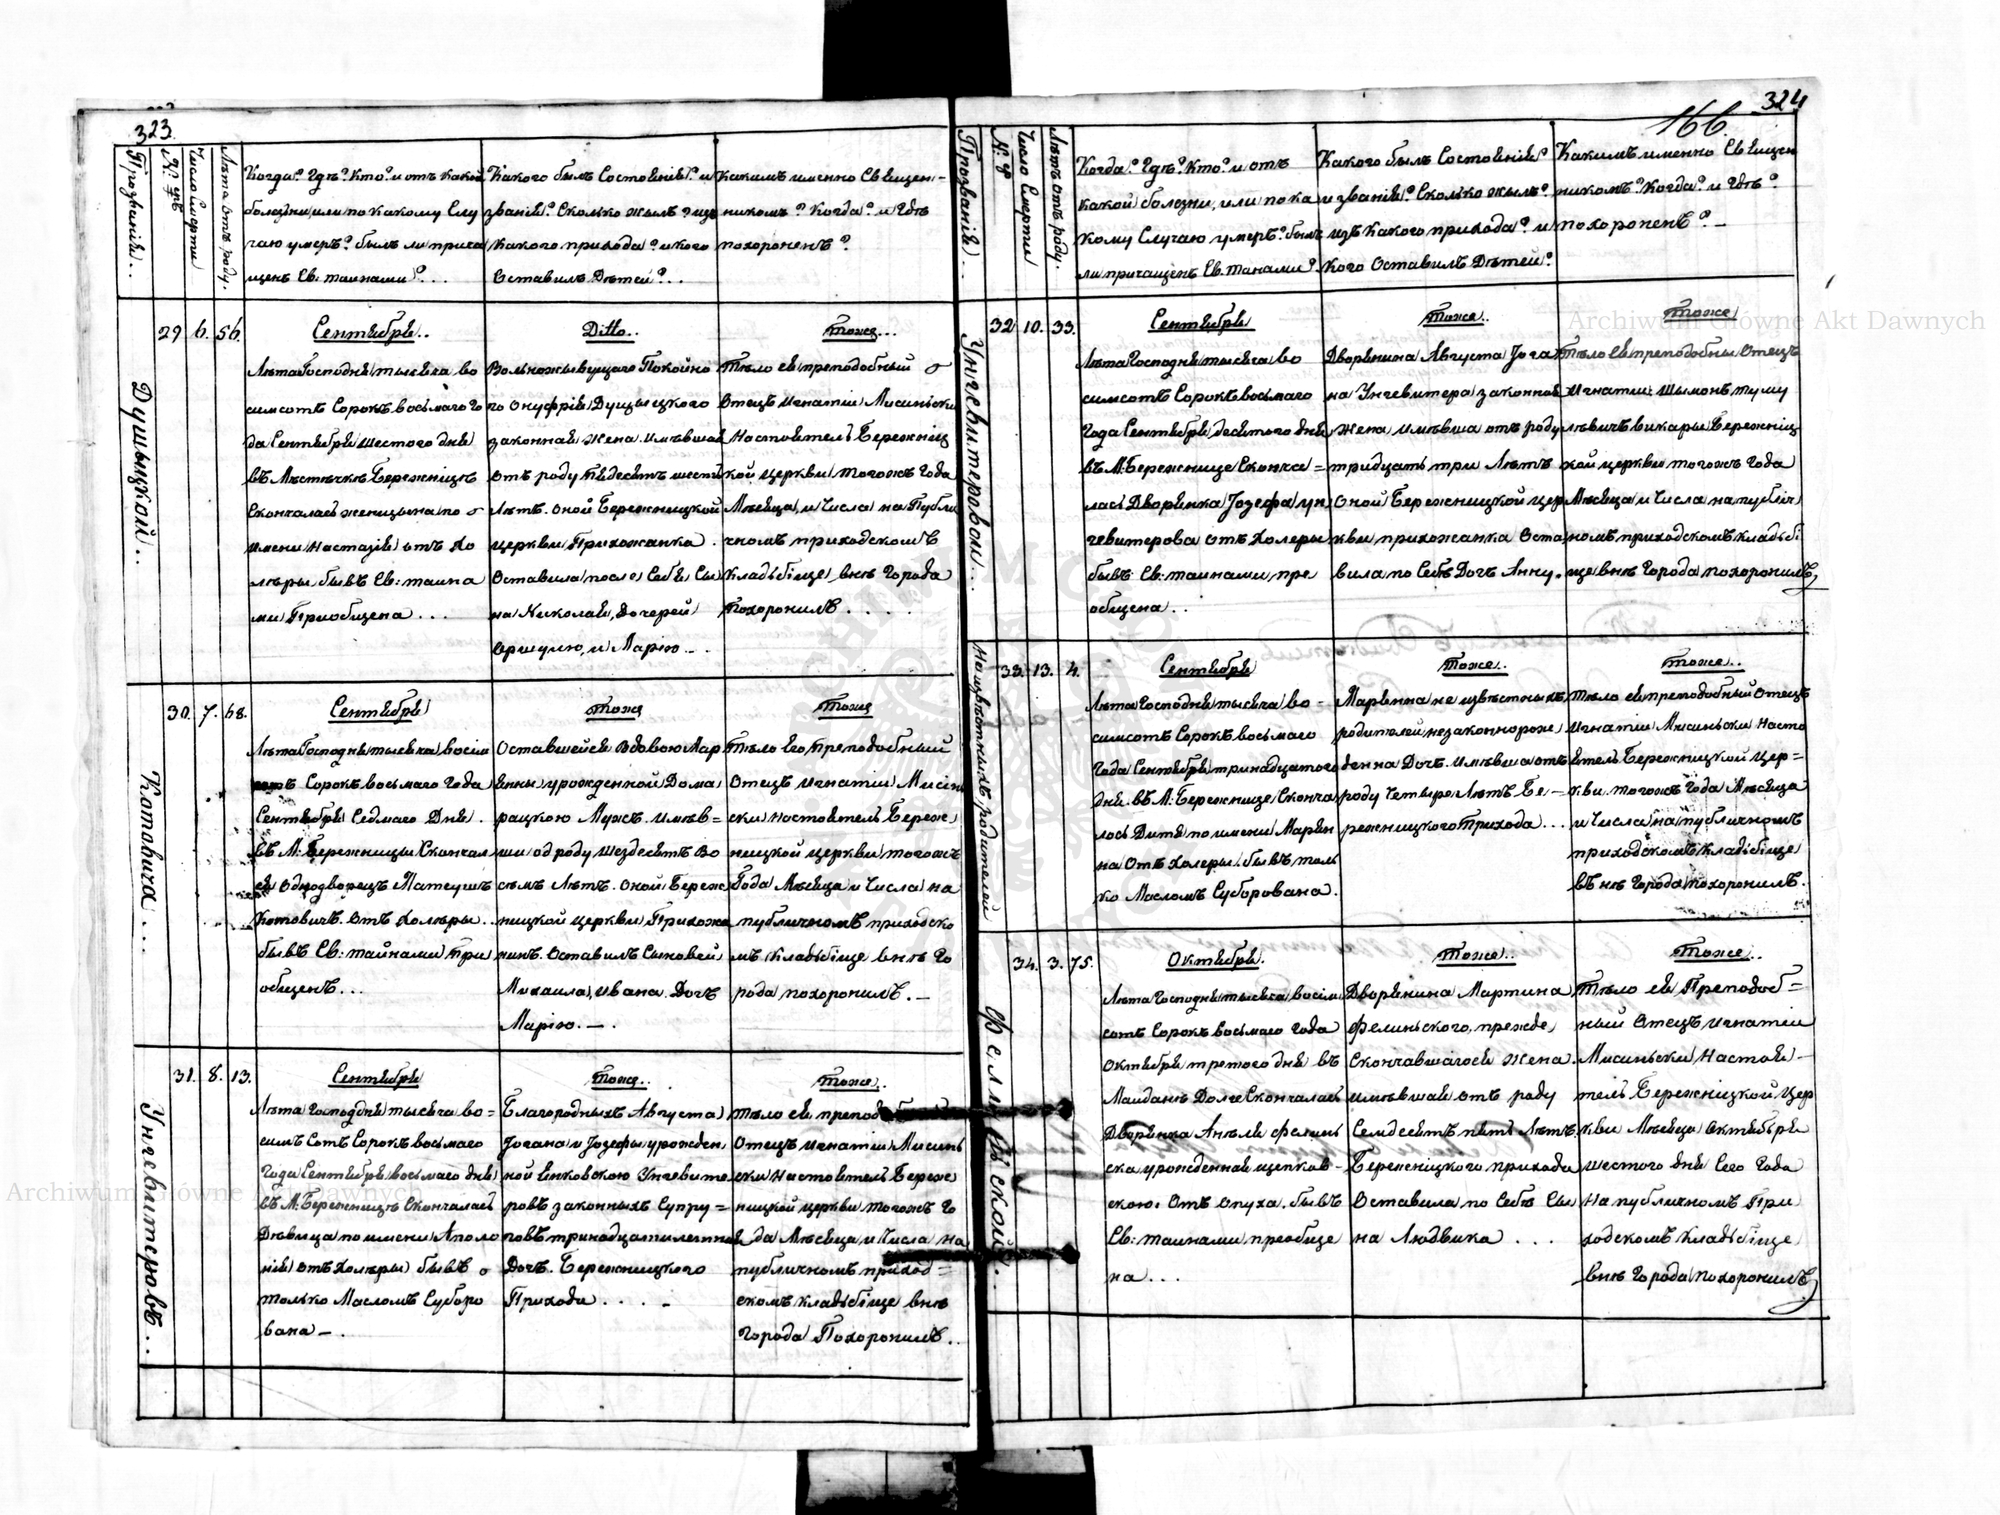 323.
Прозваніе..
№ ря
Число Смерти
Лѣта отъ роду.
Когда? гдѣ? кто? и отъ какой
болезни или по какому слу
чаю умеръ? былъ ли прича
щенъ Св. таинами?...
Какого былъ состоянія? и
званія? Сколько жылъ? изъ
какого прихода? и кого
Оставилъ Дѣтей?..
Какимъ именно Священ-
никомъ? Когда? и гдѣ
похороненъ?
Душыцкой..
29
6.
56.
Сентября..
Лѣта Господня тысяча во
симсотъ Сорокъ восьмаго Го
да Сентября шестого дня
въ Мѣстечкѣ Бережницѣ
Скончалась женщына по
имени Настазія отъ Хо
леры бывъ Св: таина
ми Пріобщена...
Ditto..
Вольножывущаго Покойно
го Онуфрія Дущыцкого
законная жена имѣвшая
отъ роду Пядесятъ шесть
Лѣтъ. оной Бережницкой
церкви Прихожанка.
Оставила после Себя Сы
на Николая, Дочерей
Оршулю, и Марію..
тожъ...
Тѣло ея преподобный
Отецъ Игнатій Мисиньски
Настоятель Бережниц
кой церкви тогожъ Года
Мѣсяца, и Числа на Публи
чномъ приходскомъ
Кладьбіще внѣ Города
Похоронилъ....
Котовича....
30.
7.
68.
Сентября
Лѣта Господня тысяча восім
сотъ Сорокъ восьмаго Года
Сентября Седмаго Дня.
въ М. Бережницы Скончал
ся Однодворецъ Матеушъ
Котовичъ. отъ Холеры..
бывъ Св: тайнами при
общенъ...
тожъ
Оставшейся Вдовою Мар
янны урожденной Дома
рацкою Мужъ. имѣв=
ши од роду шездесятъ во
семъ Лѣтъ. оной Береж
ницкой церкви Прихожа
нинъ. Оставилъ Сыновей
Михаила, Ивана. Дочъ
Марію.—.
тожъ
Тѣло его преподобный
Отецъ Игнатій Мисинь
ски настоятель Береж
ницкой церкви тогожъ
Года Мѣсяца и Числа на
публичномъ приходско
мъ кладьбіще внѣ Го
рода похоронилъ.—
Унгевитеровъ..
31.
8.
13.
Сентября
Лѣта Господня тысяча во=
симъ Сотъ Сорокъ восьмаго
года Сентября восьмаго дня
въ М. Бережницѣ Скончалась
Дѣвица по имени Аполо
нія отъ Холеры бывъ
только Масломъ Суборо
вана—.
тожъ..
Благородныхъ Августа
Іогана и Іозефы урожден
ной Янковскою Унгевите
ровъ законныхъ Супру=
говъ тринадцатилетняя
Дочъ. Бережницкого
Прихода....
тоже..
тѣло ея препод
Отецъ Игнатій Мисинь
ски Настоятель Береж
ницкой церкви тогожъ Го
да Мѣсяца и Числа на
публичномъ приход=
скомъ кладьбіще внѣ
города Похоронилъ..
324
166.
Прозваніе..
№ ря
Число Смерти
Лѣтъ отъ роду.
Когда? Гдѣ? Кто? и отъ
какой болезни, или по ка
кому Случаю умеръ? былъ
ли причащенъ Св. таинами?
Какого былъ Состоянія?
и званія? Сколько жылъ?
изъ Какого прихода? и
кого Оставилъ Дѣтей?
Какимъ именно Священ
никомъ? Когда? и Гдѣ?
похороненъ?—
Унгевитеровой..
32
10.
33.
Сентября
Лѣта Господня тысяча во
симсотъ Сорокъ восьмаго
Года Сентября десятого дня
въ М. Бережнице Сконча=
лась Дворянка Іозефа Ун
гевитерова отъ Холеры
бывъ Св: таинами прі
общена..
тоже..
Дворянина Августа Іога
на Унгевитера законная
жена имѣвша отъ роду
тридцать три Лѣтъ
Оной Бережницкой цер
кви прихожанка Оста
вила по Себѣ Дочъ Анну.
тоже
Тѣло ея преподобны Отецъ
Игнатій Шымонъ тучу
лѣвичъ викарый Бережниц
кой церкви тогожъ Года
Мѣсяца и Числа на публіч
номъ приходскомъ кладьбі
ще внѣ Города похоронилъ
Ныизвѣстныхъ родителей
33.
13.
4.
Сентября
Лѣта Господня тысяча во-
симсотъ Сорокъ восьмаго
Года Сентября тринадцатого
дня. въ М: Бережнице Сконча
лось Дитя по имени Марян
на отъ холеры. бывъ толь
ко Масломъ Суборована.
тоже..
Марянна не извѣстныхъ
родителей, незаконнорож
денна Дочъ. имѣвша отъ
роду Четыре Лѣтъ Бе-
режницкого Прихода...
тоже..
Тѣло ея преподобный Отецъ
Игнатій Мисиньски Насто
ятель Бережницкой Цер=
кви. тогожъ Года Мѣсяца
и Числа на публичномъ
приходскомъ кладьбіще
внѣ Города похоронилъ.
Фелиньской.
34.
3.
75.
Октября.
Лѣта Господня тысяча восім
сотъ Сорокъ восьмаго года
Октября третого дня въ
Майданѣ Долже Скончалась
Дворянка Анеля Фелинь
ска урожденная щепков-
скою. Отъ опуха. бывъ
Св: таинами преобще
на...
тоже..
Дворянина Мартина
Фелиньского, прежде
Скончавшагося Жена.
имѣвшая отъ роду
Семдесятъ пять Лѣтъ
Бережницкого прихода
Оставила по Себѣ Сы
на Людвика...
тоже..
Тѣло ея Преподоб=
ный Отецъ Игнатій
Мисиньски Настоя-
тель Бережницкой Цер
кви Мѣсяца Октября
шестого дня Сего Года
На публичномъ При
ходскомъ Кладьбіще
внѣ Города похоронилъ
Archiwum Główne Akt Dawnych
Archiwum Główne Akt Dawnych